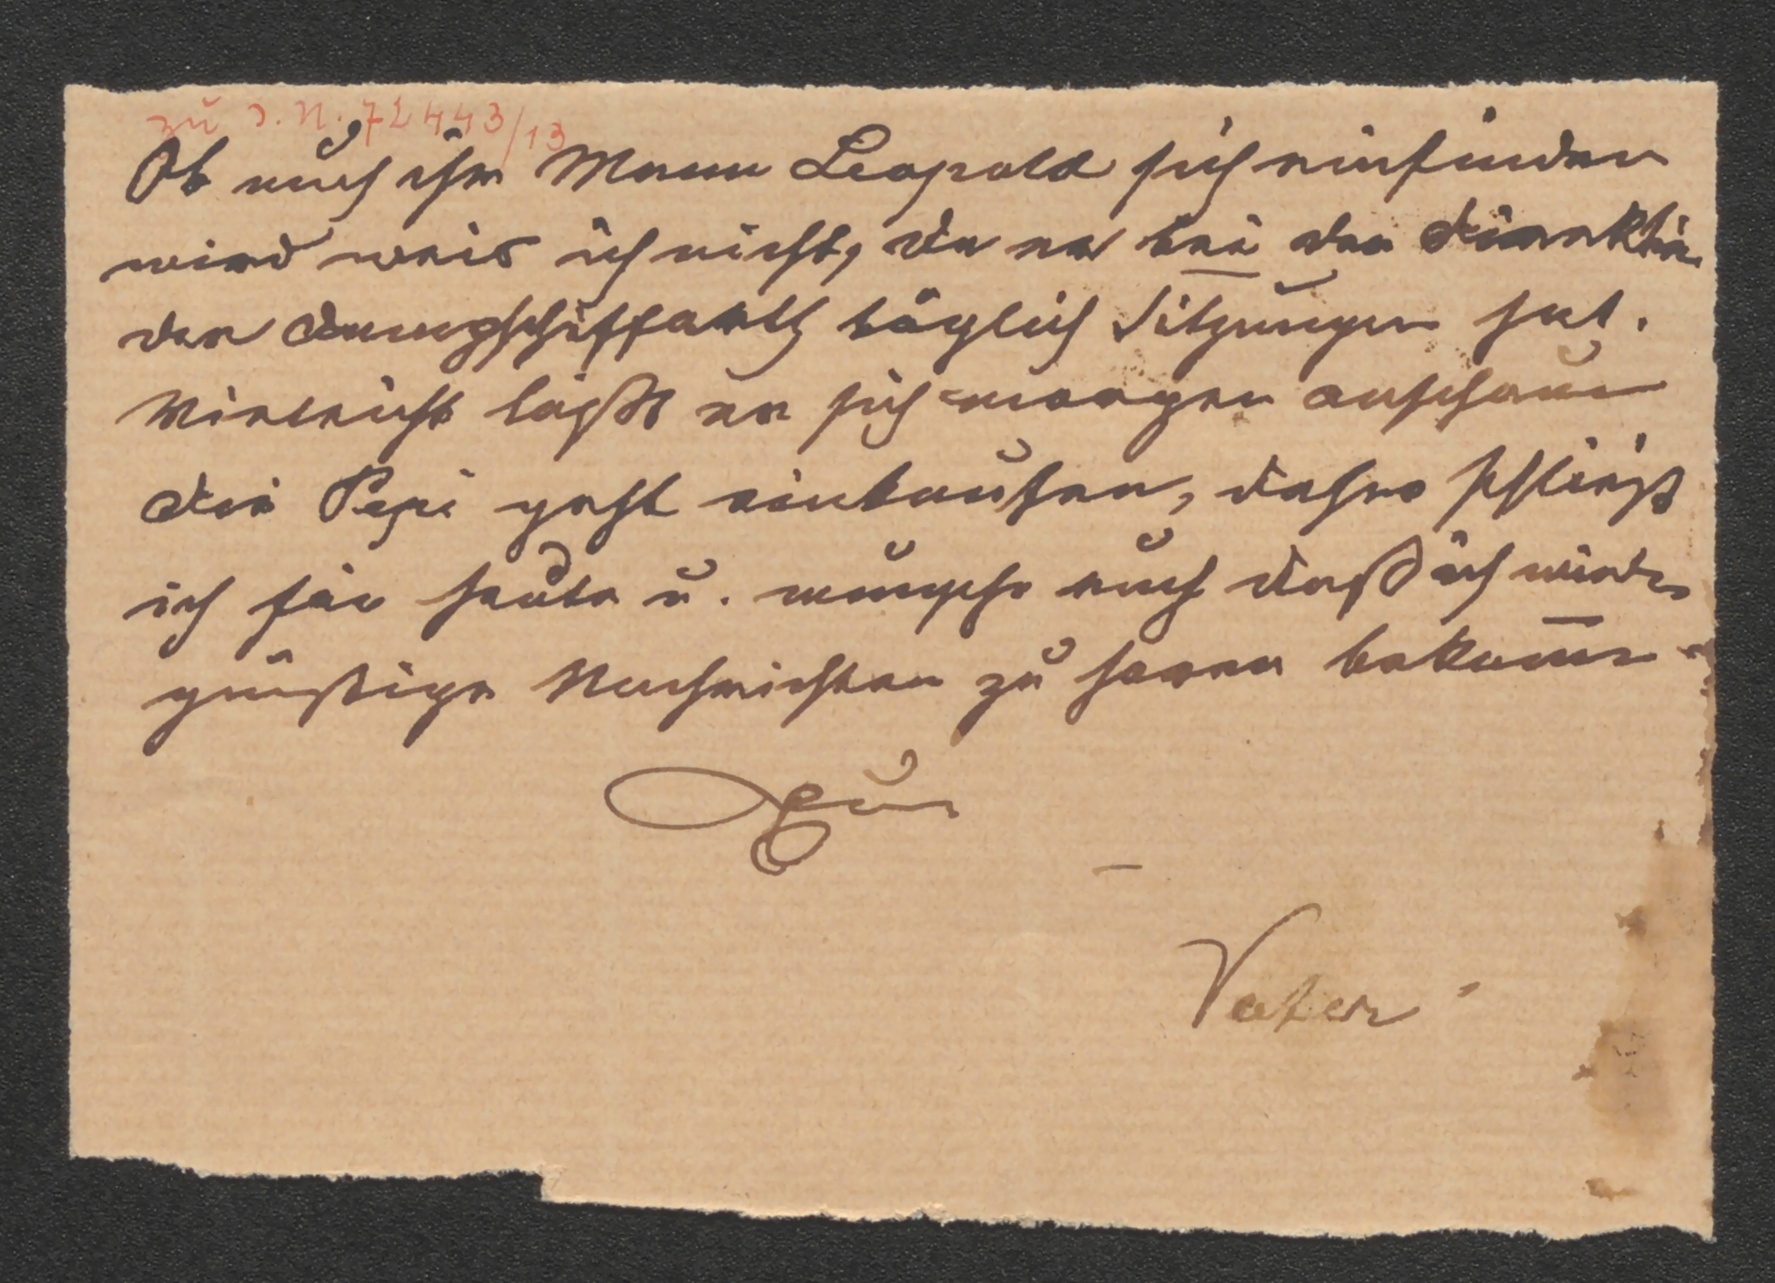 zu I.N. 72443/13
Ob auch ihr Mann Leopold sich einfinden
wird weis ich nicht, da er bei der Direktion
der Dampfschiffarth täglich Sitzungen hat.
Vielleicht läßt er sich morgen anschaun
die Pepi geht einkaufen, daher schließ
ich für heute u. wünsche auch daß ich wieder
günstige Nachrichten zu hören bekomme
Eur
Vater